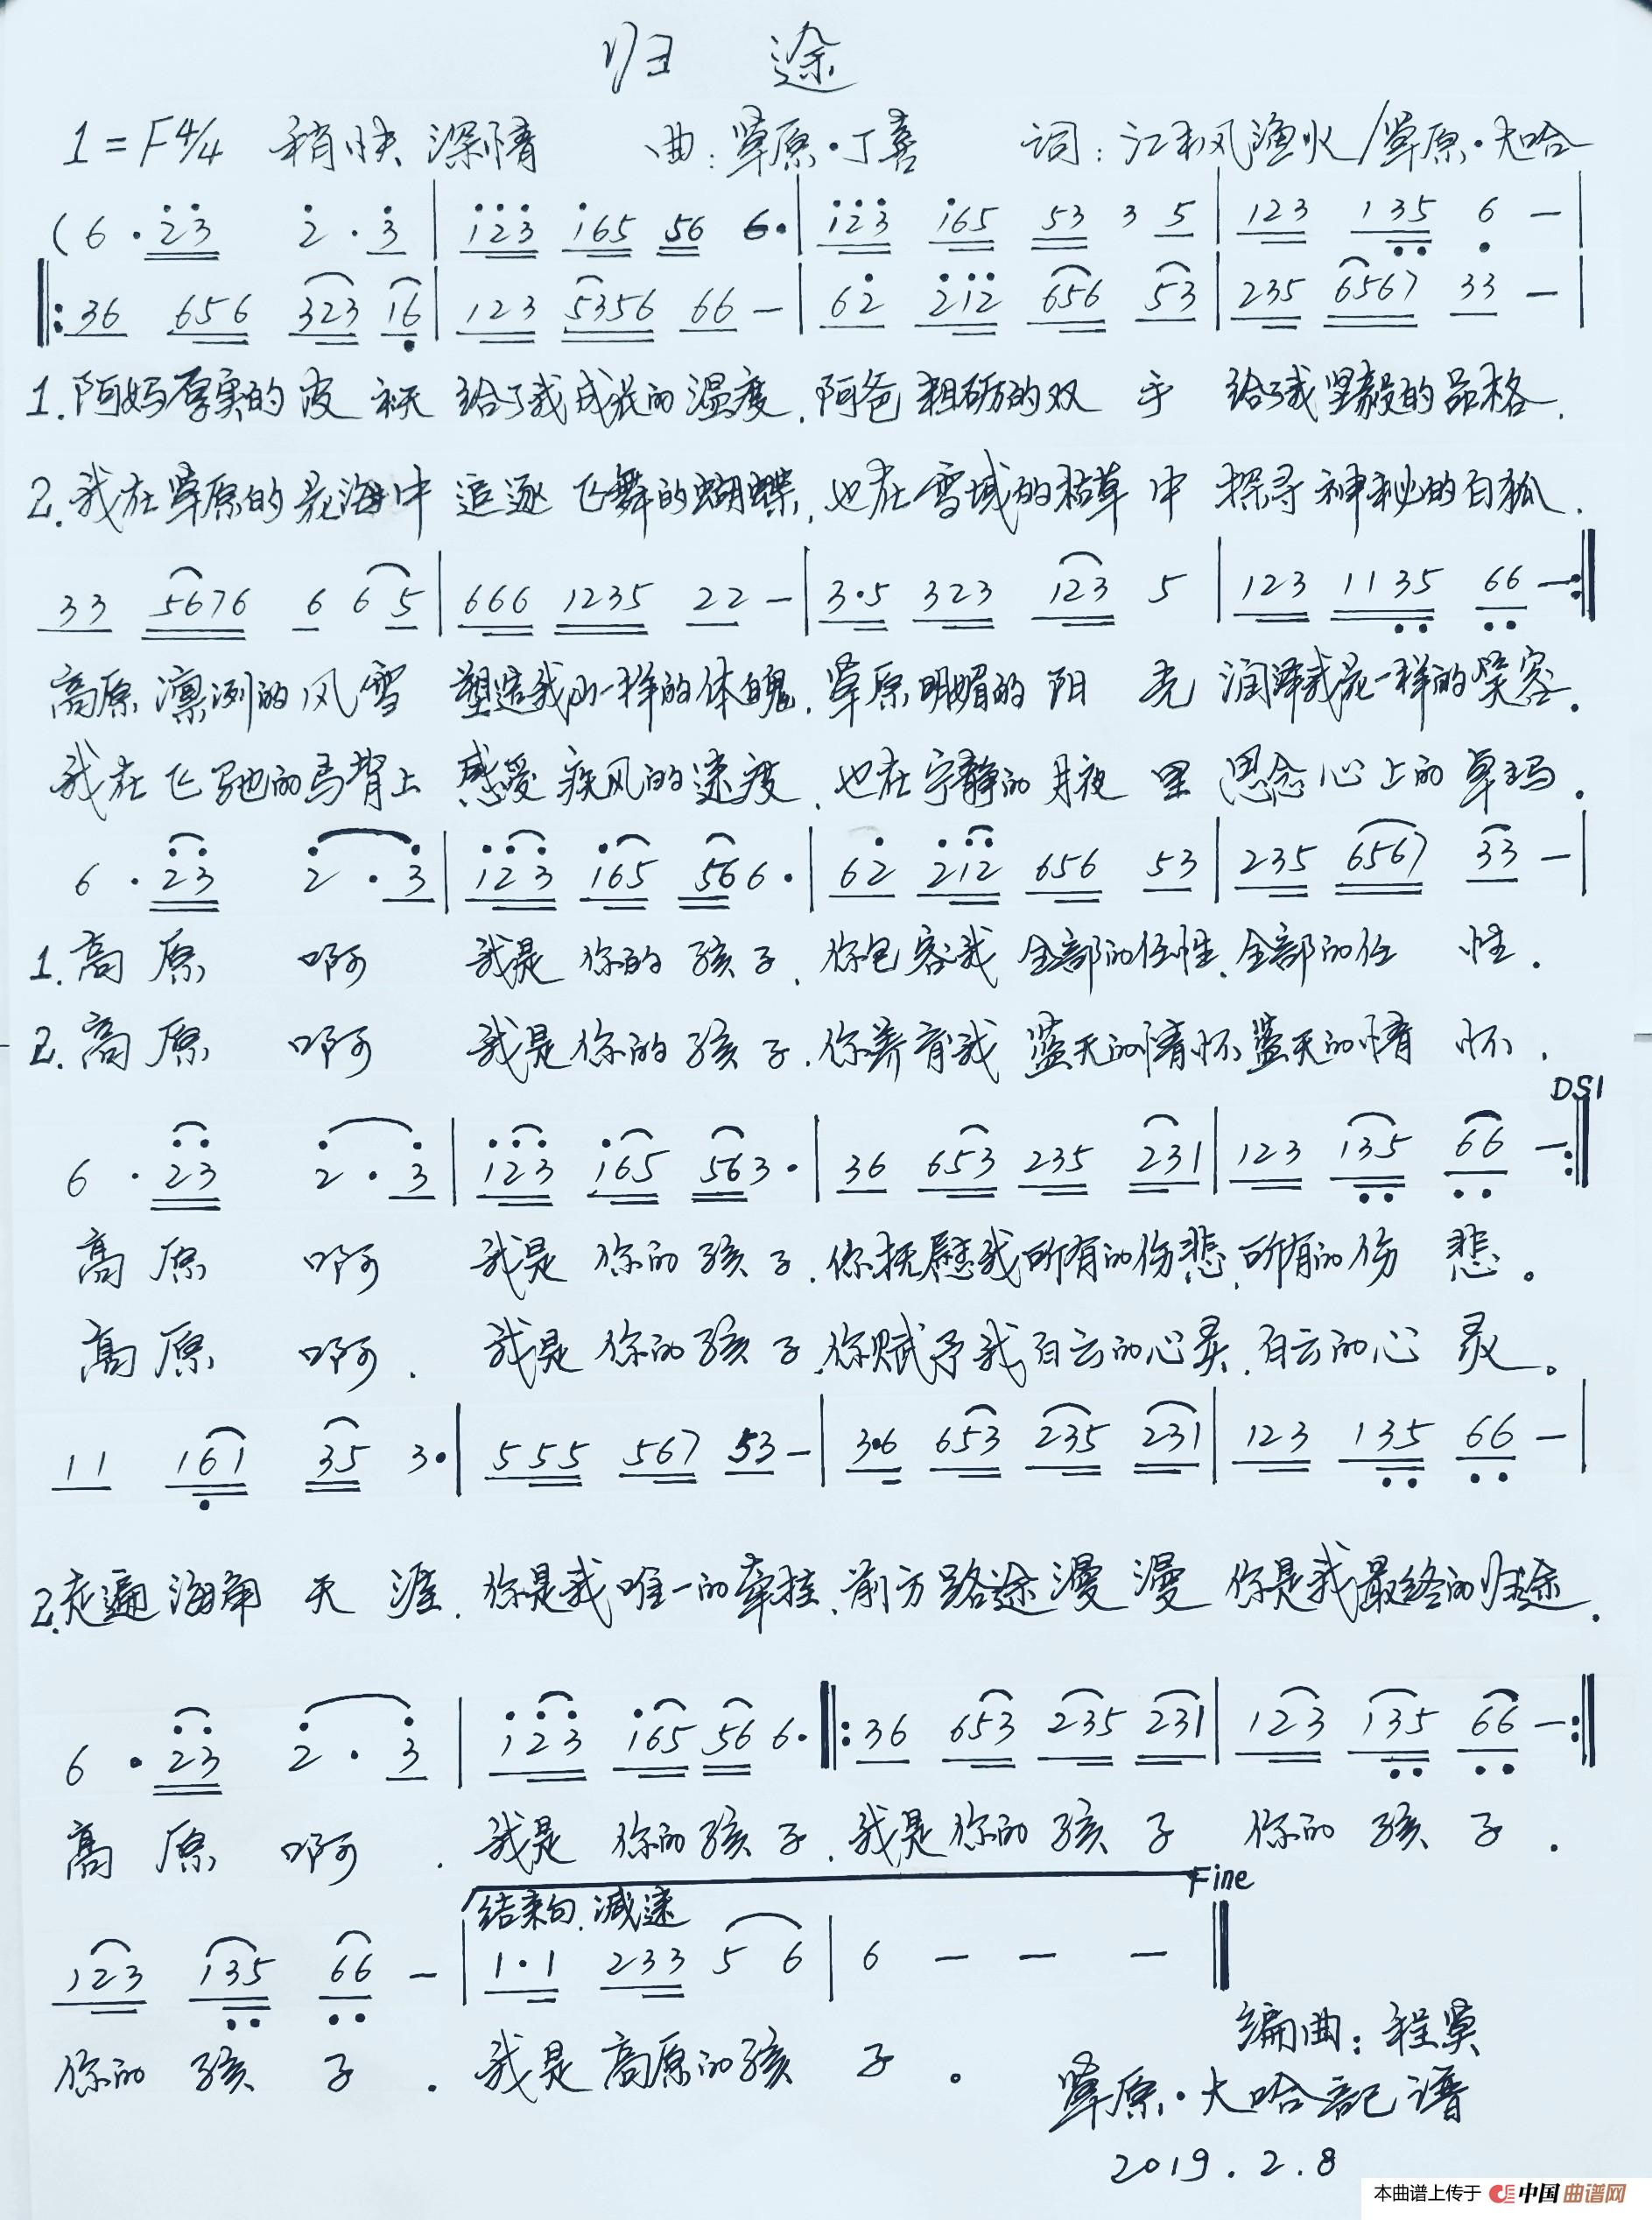 归 途
1=F4/4 稍快 深情 曲:草原·丁喜 词:江枫渔火/草原·大哈
(6·23 2·3|123 165 56 6·|123 165 53 3 5|123 135 6 —|
‖:36 656 323 16|123 5356 66 —|62 212 656 53|235 6567 33 —|
1.阿妈厚实的皮袄 给了我成长的温度,阿爸粗砺的双 手 给了我坚毅的品格.
2.我在草原的花海中 追逐飞舞的蝴蝶,也在雪域的枯草中 探寻神秘的白狐.
33 5676 6 6 5|666 1235 22 —|3·5 323 123 5|123 1135 66 —:‖
高原凛冽的风雪 塑造我山一样的体魄,草原明媚的阳 光 润泽我花一样的笑容.
我在飞驰的马背上 感受疾风的速度,也在宁静的月夜 里 思念心上的卓玛.
6·23 2·3|123 165 56 6·|62 212 656 53|235 6567 33 —|
1.高原 啊 我是你的孩子,你包容我 全部的任性,全部的任 性.
2.高原 啊 我是你的孩子,你养育我 蓝天的情怀 蓝天的情 怀.
DS1
6·23 2·3|123 165 56 3·|36 653 235 231|123 135 66 —:‖
高原 啊 我是你的孩子,你抚慰我所有的伤悲,所有的伤 悲。
高原 啊. 我是你的孩子,你赋予我白云的心灵,白云的心 灵。
11 161 35 3·|555 567 53 —|3·6 653 235 231|123 135 66 —|
2.走遍海角 天 涯,你是我唯一的牵挂,前方路途漫 漫 你是我最终的归途.
6·23 2·3|123 165 56 6·‖:36 653 235 231|123 135 66 —:‖
高原 啊. 我是你的孩子,我是你的孩 子 你的 孩 子.
结束句.减速 Fine
123 135 66 —|1·1 233 5 6|6 — — —‖
你的 孩 子. 我是高原的孩 子。
编曲:程昊
草原·大哈記谱
2019.2.8
本曲谱上传于 中国曲谱网